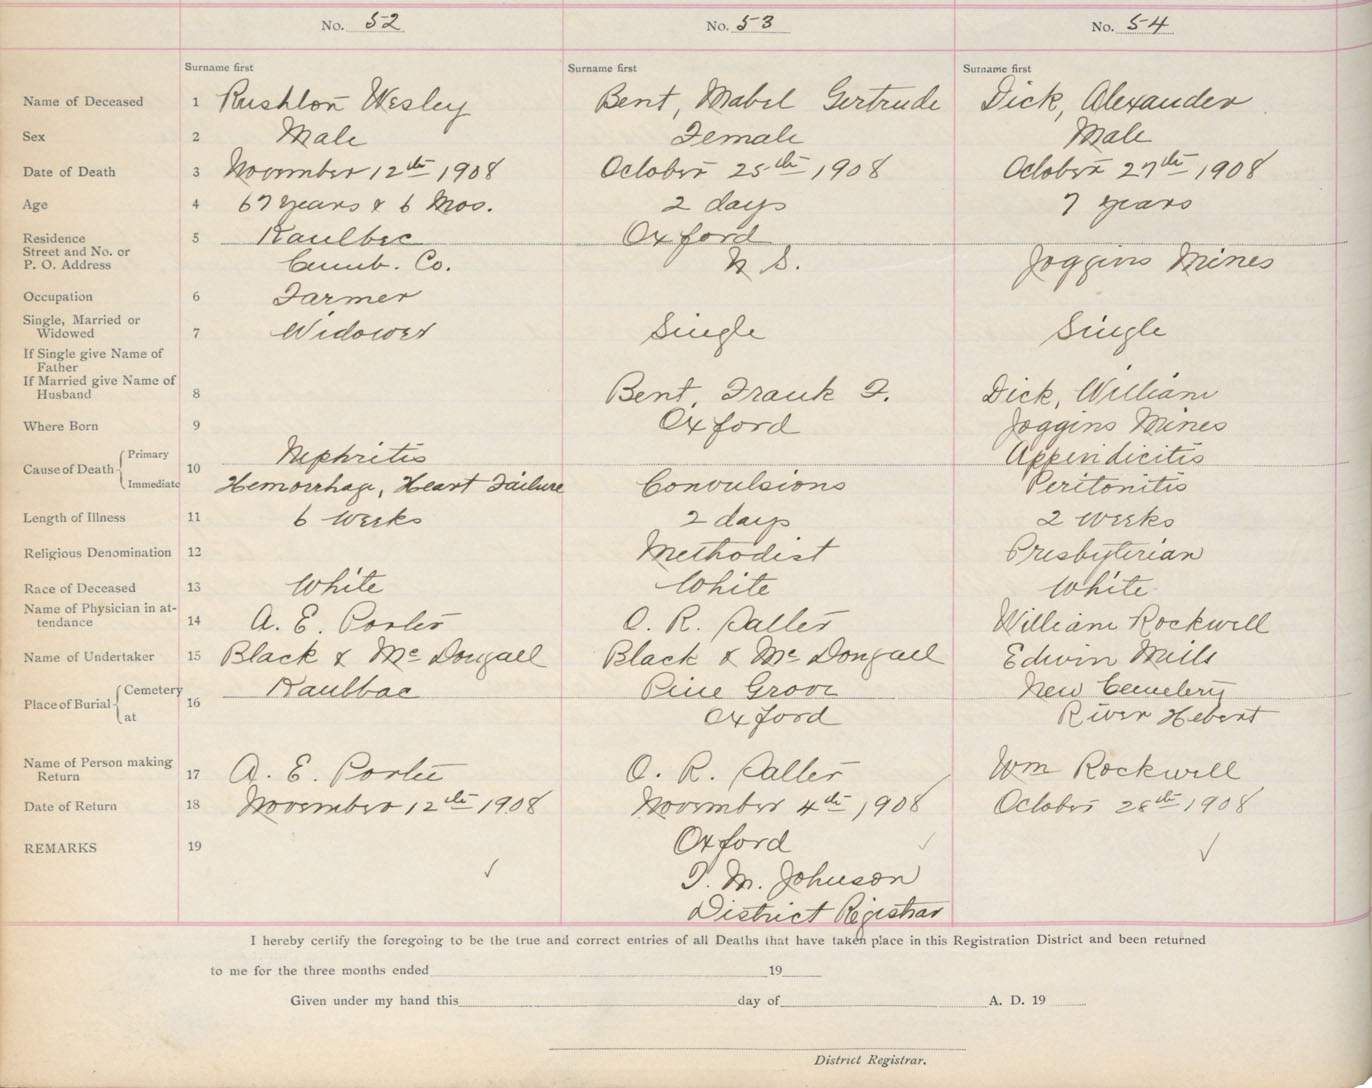 No. 52 No. 53 No. 54
Surname first Surname first Surname first
Name of Deceased 1 Rushton Wesley Bent, Mabel Gertrude Dick, Alexander
Sex 2 Male Female Male
Date of Death 3 November 12th 1908 October 25th 1908 October 27th 1908
Age 4 67 years & 6 Mos. 2 days 7 years
Residence 5 Kaulbec Oxford
Street and No. or
P. O. Address Cumb. Co. N S. Joggins Mines
Occupation 6 Farmer
Single, Married or
Widowed 7 Widower Single Single
If Single give Name of
Father
If Married give Name of
Husband 8 Bent, Frank F. Dick, William
Where Born 9 Oxford Joggins Mines
Cause of Death 10 Primary Nephritis Appendicitis
Immediate Hemorrhage, Heart Failure Convulsions Peritonitis
Length of Illness 11 6 weeks 2 days 2 weeks
Religious Denomination 12 Methodist Presbyterian
Race of Deceased 13 White White White
Name of Physician in at-
tendance 14 A. E. Porter O. R. Salter William Rockwell
Name of Undertaker 15 Black & McDougall Black & McDougall Edwin Mills
Place of Burial 16 Cemetery Kaulbac Pine Grove New Cemetery
at Oxford River Hebert
Name of Person making
Return 17 A. E. Porter O. R. Salter Wm Rockwell
Date of Return 18 November 12th 1908 November 4th 1908 October 28th 1908
REMARKS 19 Oxford
T. M. Johnson
District Registrar
I hereby certify the foregoing to be the true and correct entries of all Deaths that have taken place in this Registration District and been returned
to me for the three months ended 19
Given under my hand this day of A. D. 19
District Registrar.